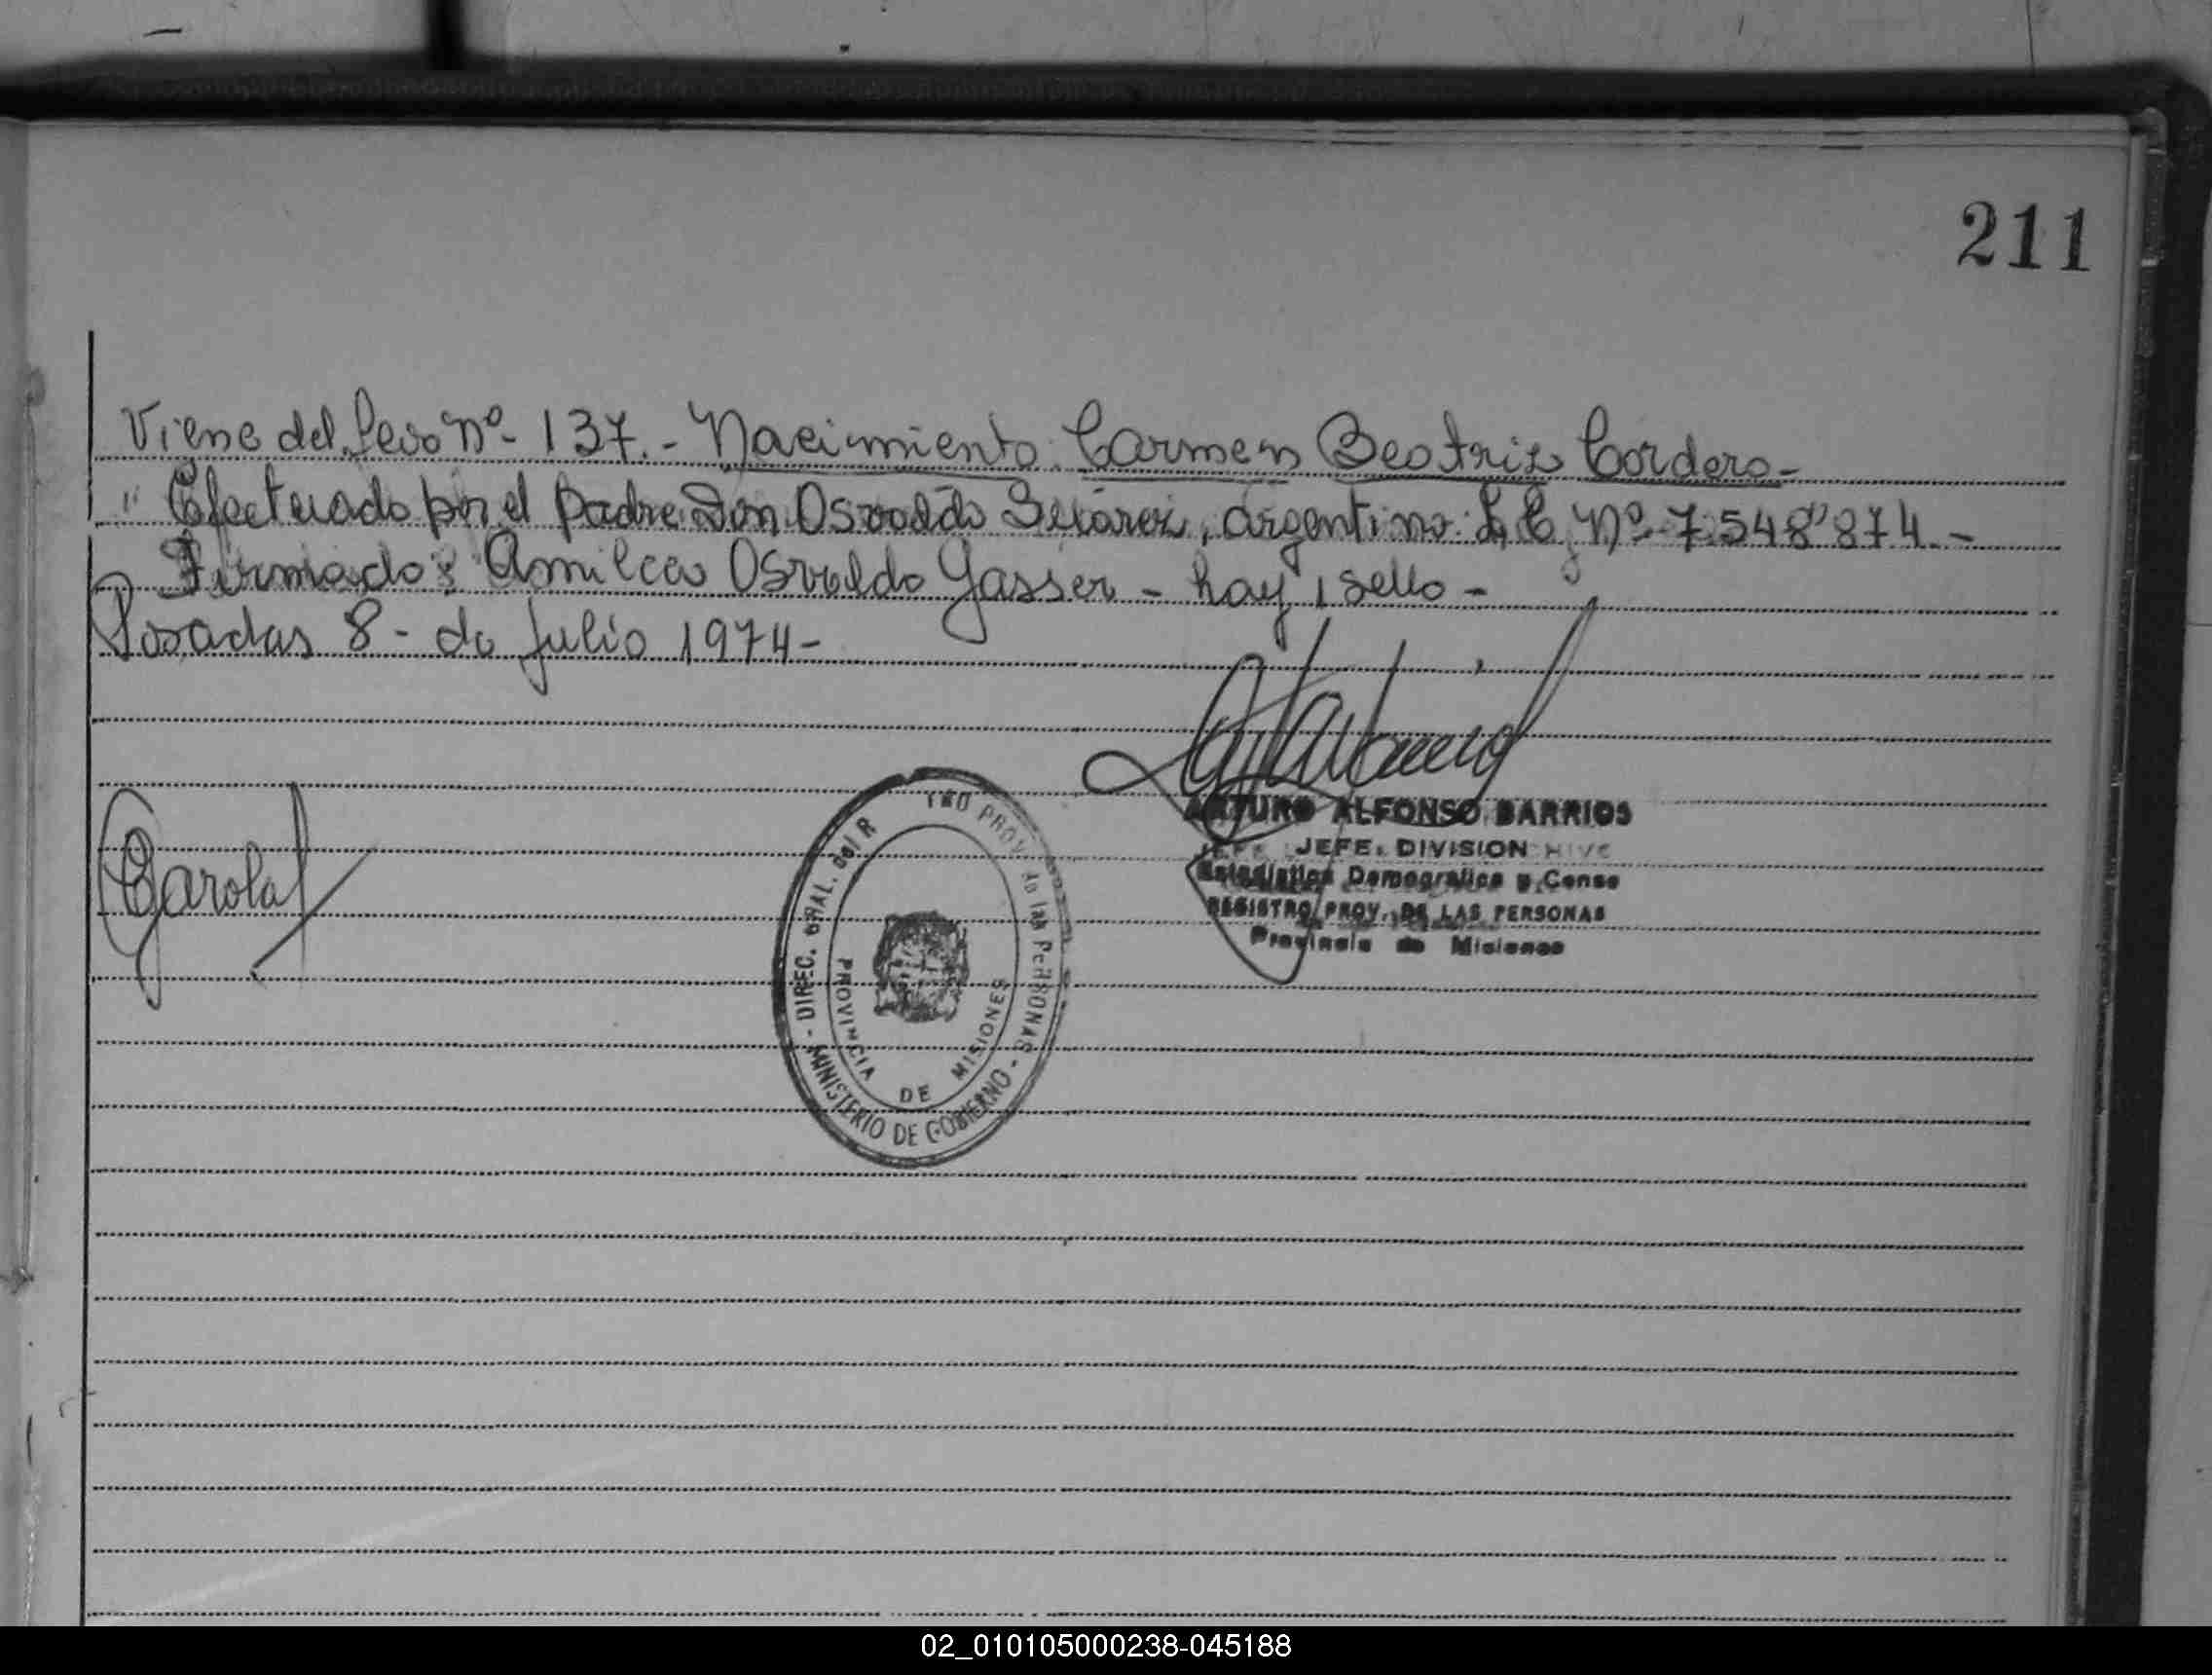 211
Viene del N° - 137. - Nacimiento Carmen Beatriz Cordero -
" Efectuado por el Padre Don Osvaldo Suárez, argentino L, E, N° - 7.548"874. -
Firmado: Amilcar Osvaldo Gasser - hay 1 sello -
Posadas 8 - de Julio 1974 -
ARTURO ALFONSO BARRIOS
JEFE DIVISION
Estadistica Demografica y Censo
REGISTRO PROV. DE LAS PERSONAS
Provincia de Misiones
- DIREC. GRAL. del R TRO PROV. de las PERSONAS -
MINISTERIO DE GOBIERNO
PROVINCIA DE MISIONES
Garola
02_010105000238-045188